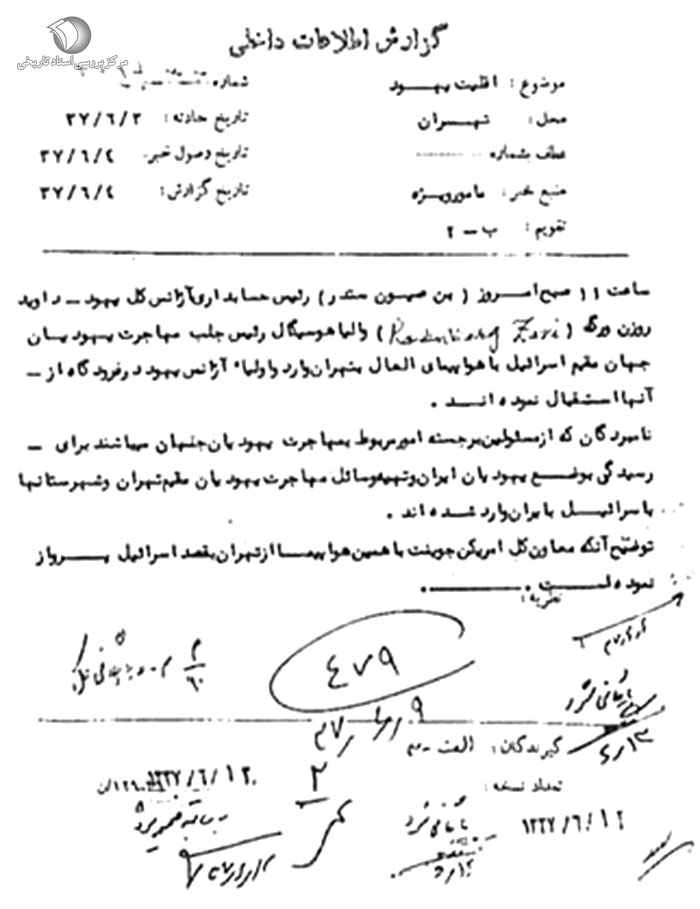 مرکز بررسی اسناد تاریخی
گزارش اطلاعات داخلی
موضوع: اقلیت یهود
شماره
محل: تهران
تاریخ حادثه: ۳۷/۶/۳
عطف بشماره
تاریخ وصول خبر: ۳۷/۶/٤
منبع خبر: مامور ویژه
تاریخ گزارش: ۳۷/۶/٤
تقویم: ب - ۲
ساعت ۱۱ صبح امروز ( بن صیون ستدر ) رئیس حسابداری آژانس کل یهود - داوید
روزن ورگ ( Zevi ) والیاهو سیگال رئیس جلب مهاجرت یهودیان
جهان مقیم اسرائیل با هواپیمای العال بتهران وارد و اولیاء آژانس یهود در فرودگاه از -
آنها استقبال نموده اند .
نامبردگان که از مسئولین برجسته امور مربوط بمهاجرت یهودیان جهان میباشند برای -
رسیدگی بوضع یهودیان ایران و تهیه وسائل مهاجرت یهودیان مقیم تهران و شهرستانها
باسرائیل بایران وارد شده اند .
توضیح آنکه معاون کل امریکن جوینت با همین هواپیما از تهران بقصد اسرائیل پرواز
نموده است .
نظریه:
٤٧٩
بایگانی شود
گیرندگان: الف - س
تعداد نسخه:
۲
بایگانی شود
۱۳۳۷/۶/۱۲
۱۳۳۷/۶/۱۲